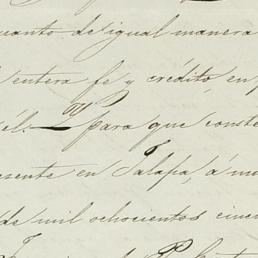 cuanto de igual manera
entera fe y crédito, en
él. Y para que conste
esente en Jalapa, á
de mil ochocientos cinc